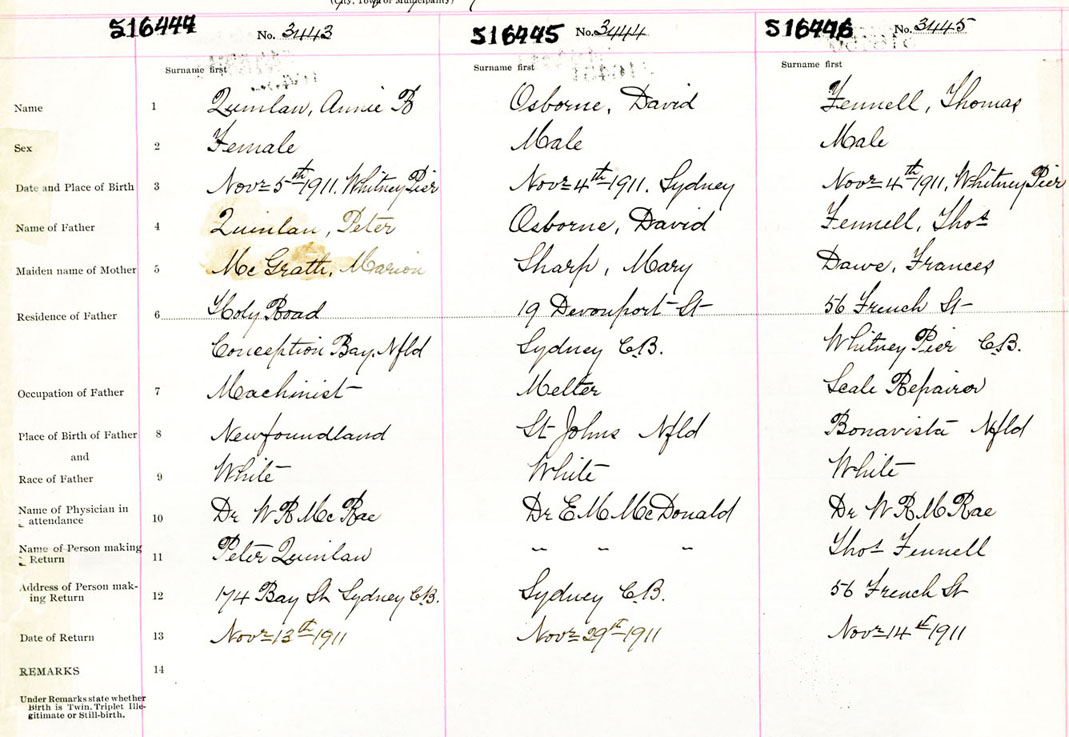 (City, Town or Municipality)
S16444 No. 3443 S16445 No. 3444 S16446 No. 3445
Surname first Surname first Surname first
Name 1 Quinlan, Annie B Osborne, David Fennell, Thomas
Sex 2 Female Male Male
Date and Place of Birth 3 Novr 5th 1911. Whitney Pier Novr 4th 1911. Sydney Novr 4th 1911, Whitney Pier
Name of Father 4 Quinlan, Peter Osborne, David Fennell, Thos
Maiden name of Mother 5 McGrath, Marion Sharp, Mary Dawe, Frances
Residence of Father 6 Holy Road 19 Devonport St 56 French St
Conception Bay. Nfld Sydney C.B. Whitney Pier C.B.
Occupation of Father 7 Machinist Melter Scale Repairer
Place of Birth of Father 8 Newfoundland St Johns Nfld Bonavista Nfld
and
Race of Father 9 White White White
Name of Physician in
attendance 10 Dr W R McRae Dr E M McDonald Dr W R McRae
Name of Person making
Return 11 Peter Quinlan " " " Thos Fennell
Address of Person mak-
ing Return 12 174 Bay St Sydney C.B. Sydney C.B. 56 French St
Date of Return 13 Novr 13th 1911 Novr 29th 1911 Novr 14th 1911
REMARKS 14
Under Remarks state whether
Birth is Twin, Triplet Ille-
gitimate or Still-birth.